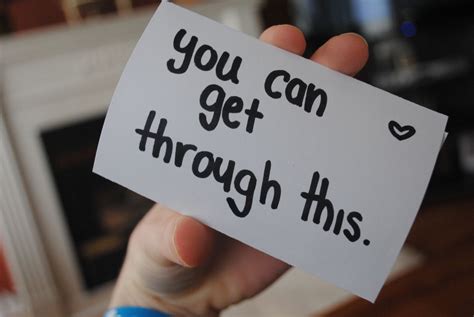 you can
get
through this.